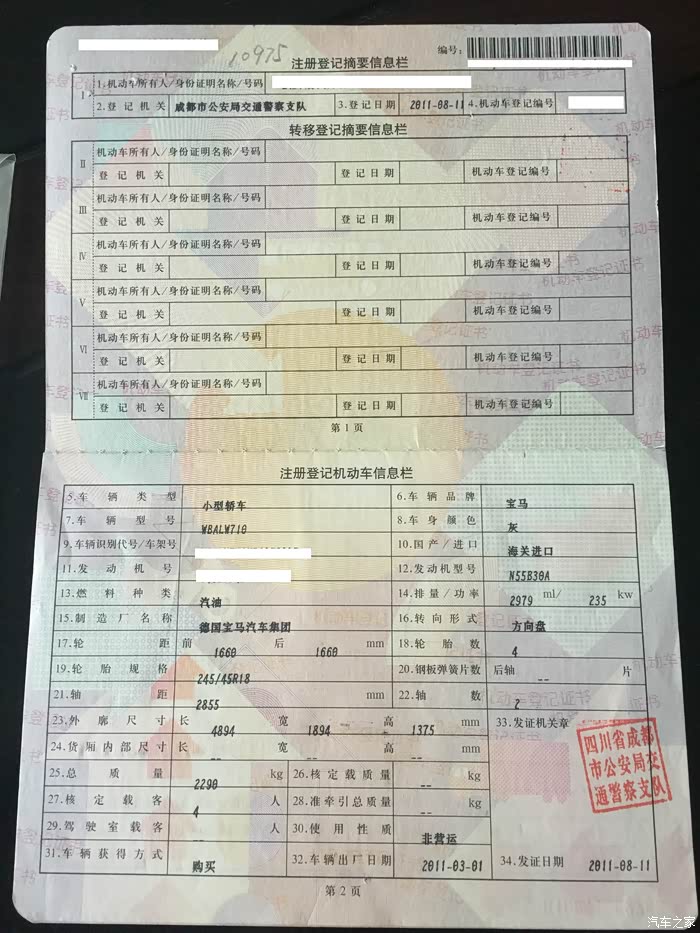 10975
编号:
注册登记摘要信息栏
I 1.机动车所有人/身份证明名称/号码
2.登记机关 成都市公安局交通警察支队 3.登记日期 2011-08-11 4.机动车登记编号
转移登记摘要信息栏
II 机动车所有人/身份证明名称/号码
登记机关 登记日期 机动车登记编号
III 机动车所有人/身份证明名称/号码
登记机关 登记日期 机动车登记编号
IV 机动车所有人/身份证明名称/号码
登记机关 登记日期 机动车登记编号
V 机动车所有人/身份证明名称/号码
登记机关 登记日期 机动车登记编号
VI 机动车所有人/身份证明名称/号码
登记机关 登记日期 机动车登记编号
VII 机动车所有人/身份证明名称/号码
登记机关 登记日期 机动车登记编号
第1页
注册登记机动车信息栏
5.车辆类型 小型轿车 6.车辆品牌 宝马
7.车辆型号 WBALW710 8.车身颜色 灰
9.车辆识别代号/车架号 10.国产/进口 海关进口
11.发动机号 12.发动机型号 N55B30A
13.燃料种类 汽油 14.排量/功率 2979 ml/ 235 kw
15.制造厂名称 德国宝马汽车集团 16.转向形式 方向盘
17.轮距 前 1660 后 1660 mm 18.轮胎数 4
19.轮胎规格 245/45R18 20.钢板弹簧片数 后轴 -- 片
21.轴距 2855 mm 22.轴数 2
23.外廓尺寸 长 4894 宽 1894 高 1375 mm 33.发证机关章
24.货厢内部尺寸 长 -- 宽 -- 高 -- mm
四川省成都
市公安局交
通警察支队
25.总质量 2290 kg 26.核定载质量 -- kg
27.核定载客 4 人 28.准牵引总质量 -- kg
29.驾驶室载客 -- 人 30.使用性质 非营运
31.车辆获得方式 购买 32.车辆出厂日期 2011-03-01 34.发证日期 2011-08-11
第2页
汽车之家